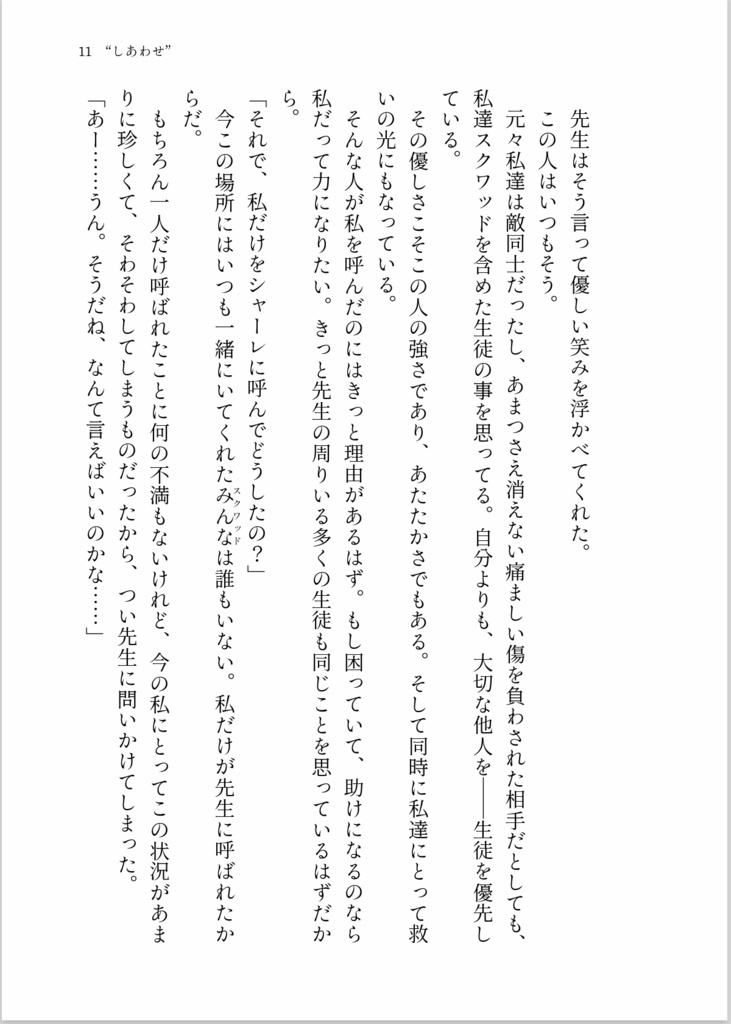 11 “しあわせ”
先生はそう言って優しい笑みを浮かべてくれた。
この人はいつもそう。
元々私達は敵同士だったし、あまつさえ消えない痛ましい傷を負わされた相手だとしても、
私達スクワッドを含めた生徒の事を思ってる。自分よりも、大切な他人を――生徒を優先し
ている。
その優しさこそこの人の強さであり、あたたかさでもある。そして同時に私達にとって救
いの光にもなっている。
そんな人が私を呼んだのにはきっと理由があるはず。もし困っていて、助けになるのなら
私だって力になりたい。きっと先生の周りいる多くの生徒も同じことを思っているはずだか
ら。
「それで、私だけをシャーレに呼んでどうしたの？」
今この場所にはいつも一緒にいてくれたみんな（スクワッド）は誰もいない。私だけが先生に呼ばれたか
らだ。
もちろん一人だけ呼ばれたことに何の不満もないけれど、今の私にとってこの状況があま
りに珍しくて、そわそわしてしまうものだったから、つい先生に問いかけてしまった。
「あー……うん。そうだね、なんて言えばいいのかな……」